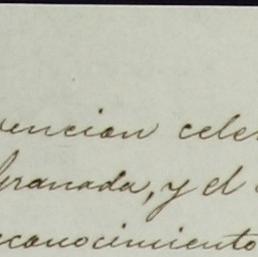 vencion cele
Granada, y el
econocimiento